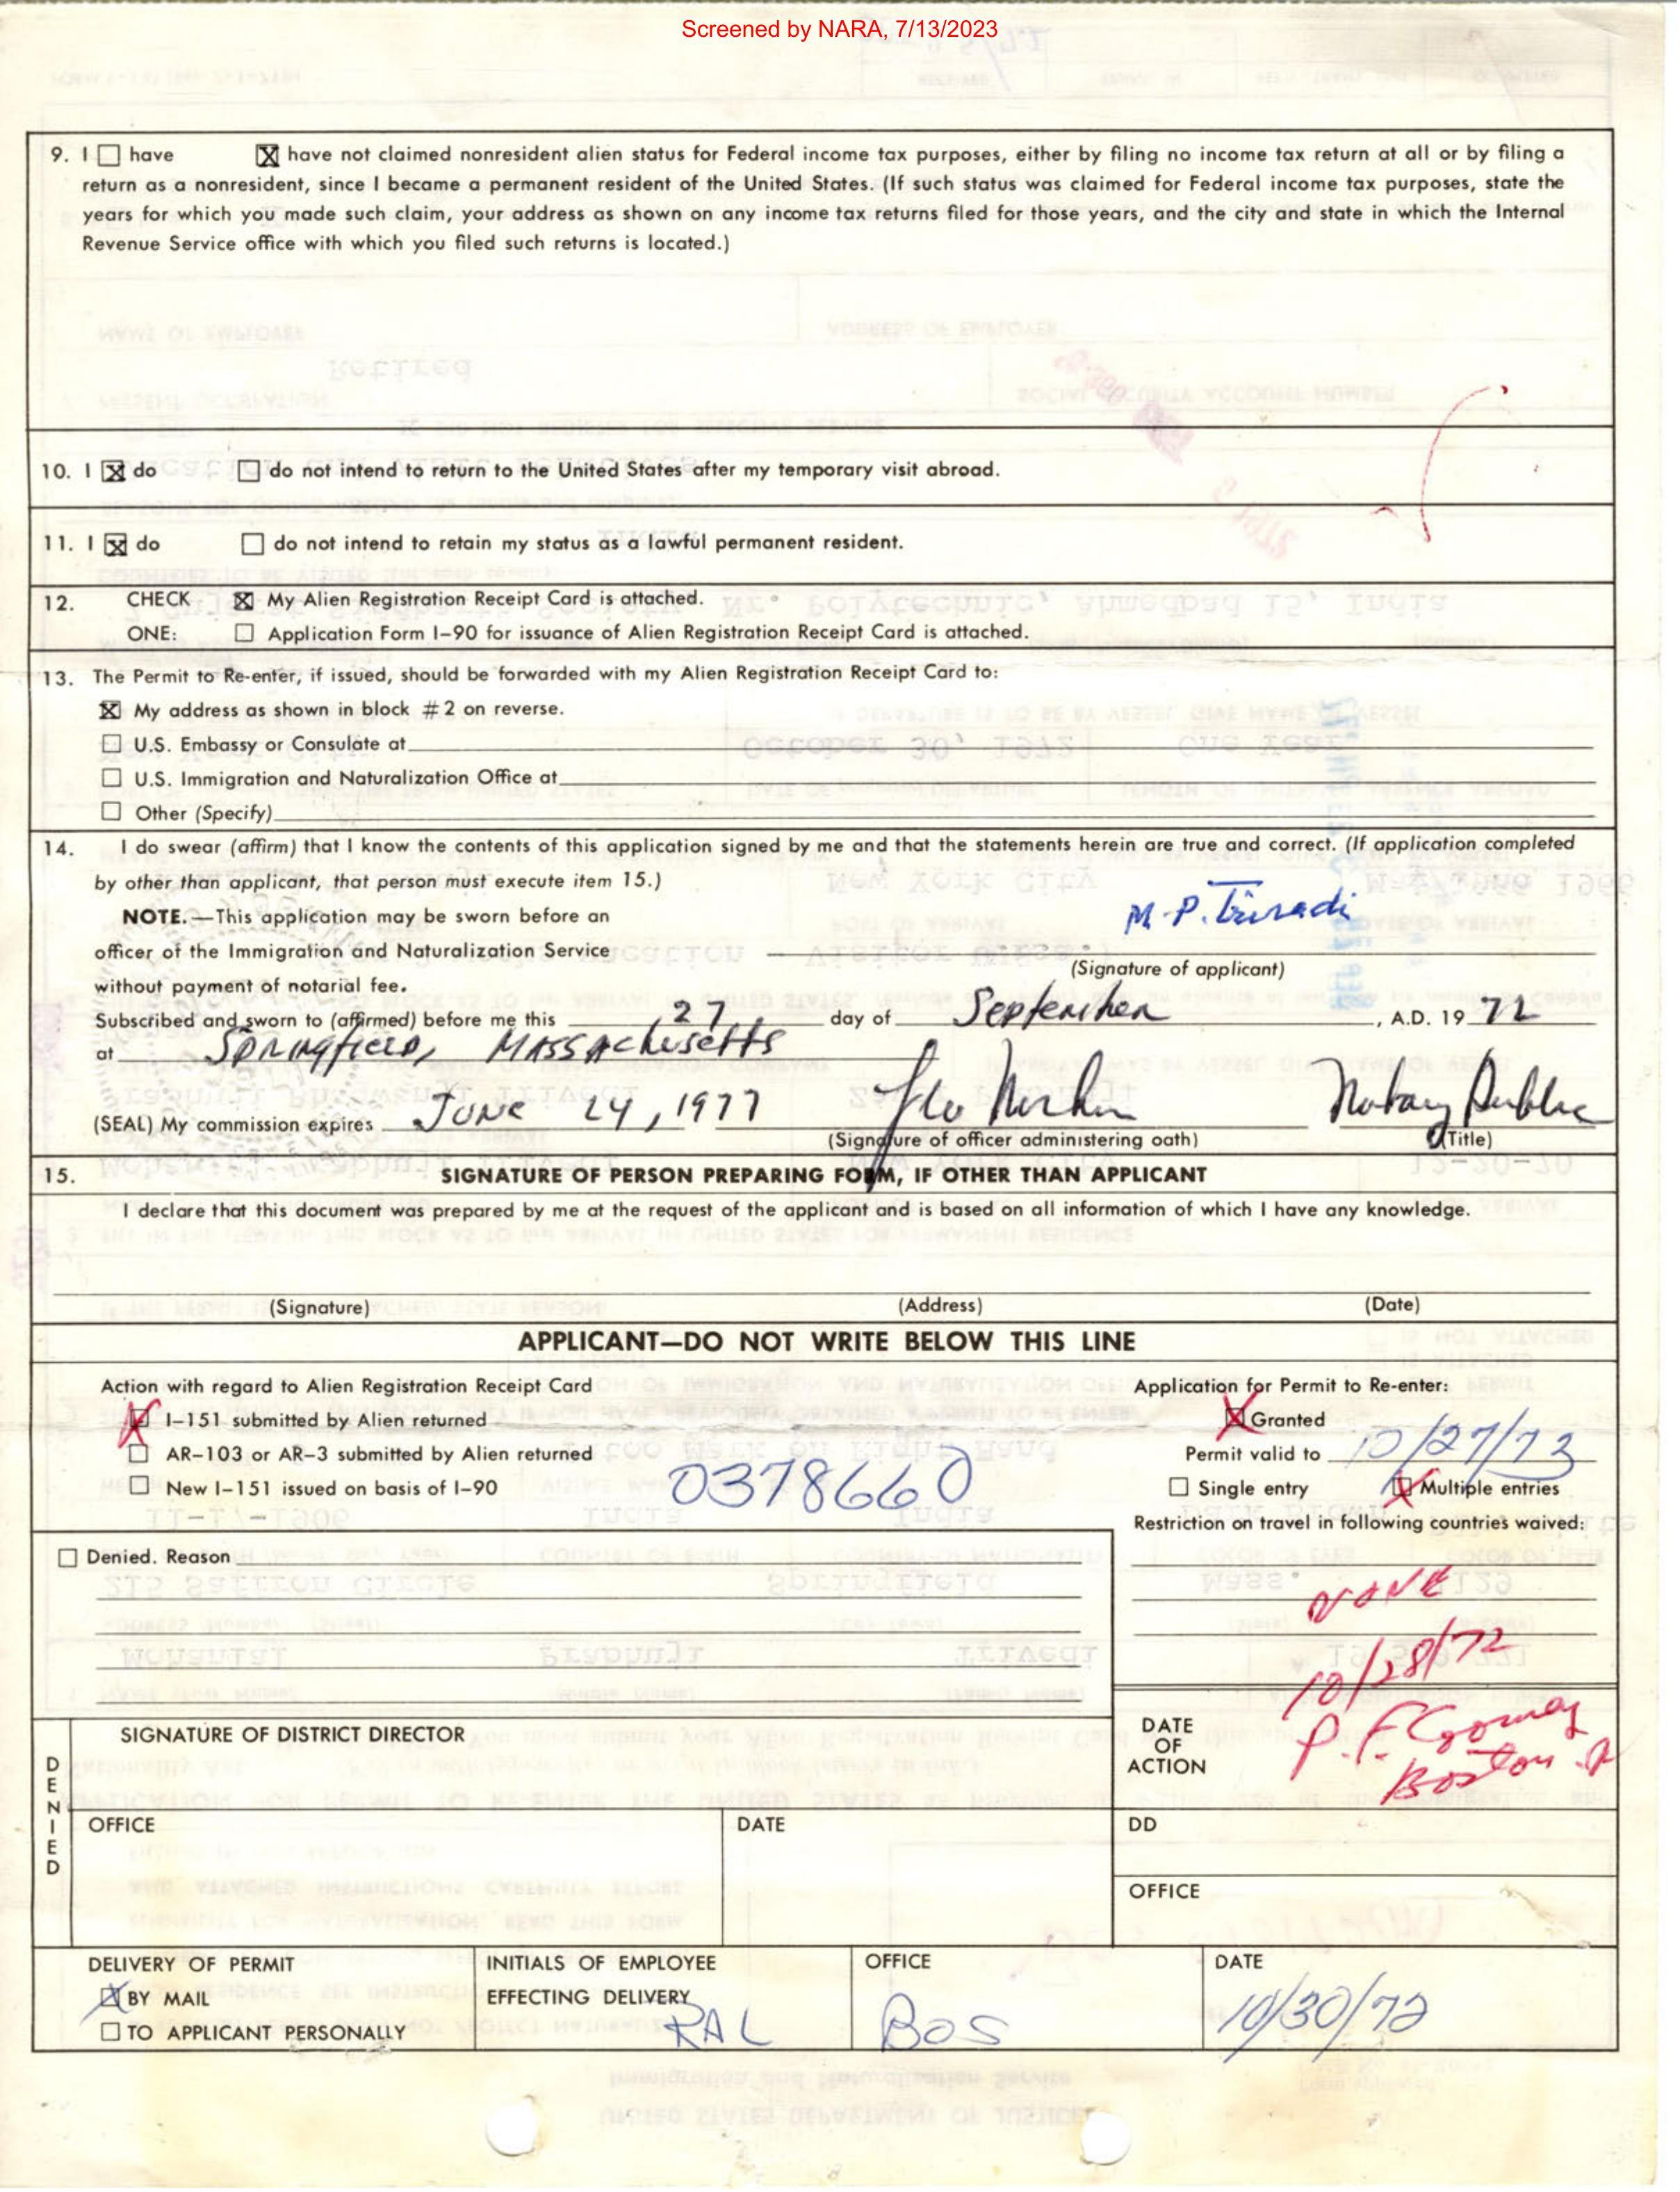 Screened by NARA, 7/13/2023
9. I ☐ have ☒ have not claimed nonresident alien status for Federal income tax purposes, either by filing no income tax return at all or by filing a
return as a nonresident, since I became a permanent resident of the United States. (If such status was claimed for Federal income tax purposes, state the
years for which you made such claim, your address as shown on any income tax returns filed for those years, and the city and state in which the Internal
Revenue Service office with which you filed such returns is located.)
10. I ☒ do ☐ do not intend to return to the United States after my temporary visit abroad.
11. I ☒ do ☐ do not intend to retain my status as a lawful permanent resident.
12. CHECK ☒ My Alien Registration Receipt Card is attached.
ONE: ☐ Application Form I-90 for issuance of Alien Registration Receipt Card is attached.
13. The Permit to Re-enter, if issued, should be forwarded with my Alien Registration Receipt Card to:
☒ My address as shown in block #2 on reverse.
☐ U.S. Embassy or Consulate at
☐ U.S. Immigration and Naturalization Office at
☐ Other (Specify)
14. I do swear (affirm) that I know the contents of this application signed by me and that the statements herein are true and correct. (If application completed
by other than applicant, that person must execute item 15.)
NOTE.—This application may be sworn before an
officer of the Immigration and Naturalization Service
without payment of notarial fee.
M. P. Trivedi
(Signature of applicant)
Subscribed and sworn to (affirmed) before me this 27 day of September, A.D. 19 72
at Springfield, Massachusetts
(SEAL) My commission expires June 24, 1977 Notary Public
(Signature of officer administering oath) (Title)
15. SIGNATURE OF PERSON PREPARING FORM, IF OTHER THAN APPLICANT
I declare that this document was prepared by me at the request of the applicant and is based on all information of which I have any knowledge.
(Signature) (Address) (Date)
APPLICANT—DO NOT WRITE BELOW THIS LINE
Action with regard to Alien Registration Receipt Card
☒ I-151 submitted by Alien returned
☐ AR-103 or AR-3 submitted by Alien returned
☐ New I-151 issued on basis of I-90
0378660
Application for Permit to Re-enter:
☒ Granted
Permit valid to 10/27/73
☐ Single entry ☒ Multiple entries
Restriction on travel in following countries waived:
NONE
☐ Denied. Reason
10/28/72
DATE OF ACTION
P. F.
Boston
DENIED
SIGNATURE OF DISTRICT DIRECTOR
OFFICE
DATE
DD
OFFICE
DELIVERY OF PERMIT
☒ BY MAIL
☐ TO APPLICANT PERSONALLY
INITIALS OF EMPLOYEE
EFFECTING DELIVERY
RAL
OFFICE
BOS
DATE
10/30/72